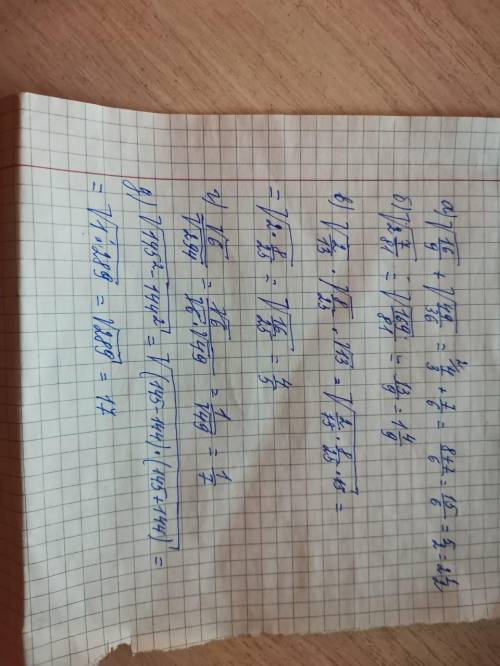 а) √(16/9) + √(49/36) = 4/3 + 7/6 = (8+7)/6 = 15/6 = 5/2 = 2 1/2
б) √(2 7/81) = √(169/81) = 13/9 = 1 4/9
в) √(2/13) · √(8/25) · √13 = √(2/13 · 8/25 · 13) =
= √(2 · 8/25) = √(16/25) = 4/5
г) √6/√294 = √6/(√6 · √49) = 1/√49 = 1/7
д) √(145² - 144²) = √((145 - 144) · (145 + 144)) =
= √(1 · 289) = √289 = 17